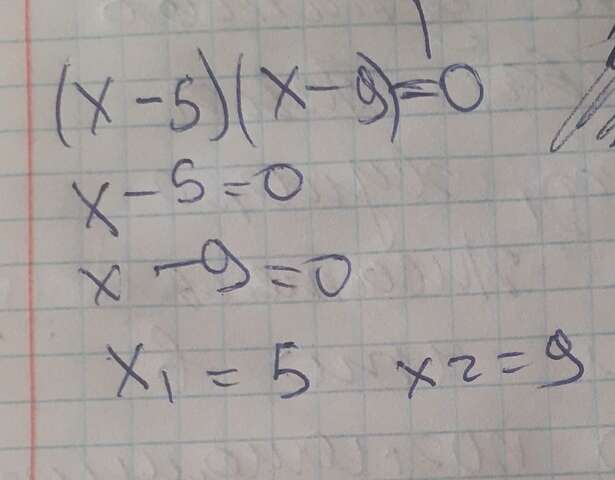 (x-5)(x-9)=0
x-5=0
x-9=0
x1=5 x2=9